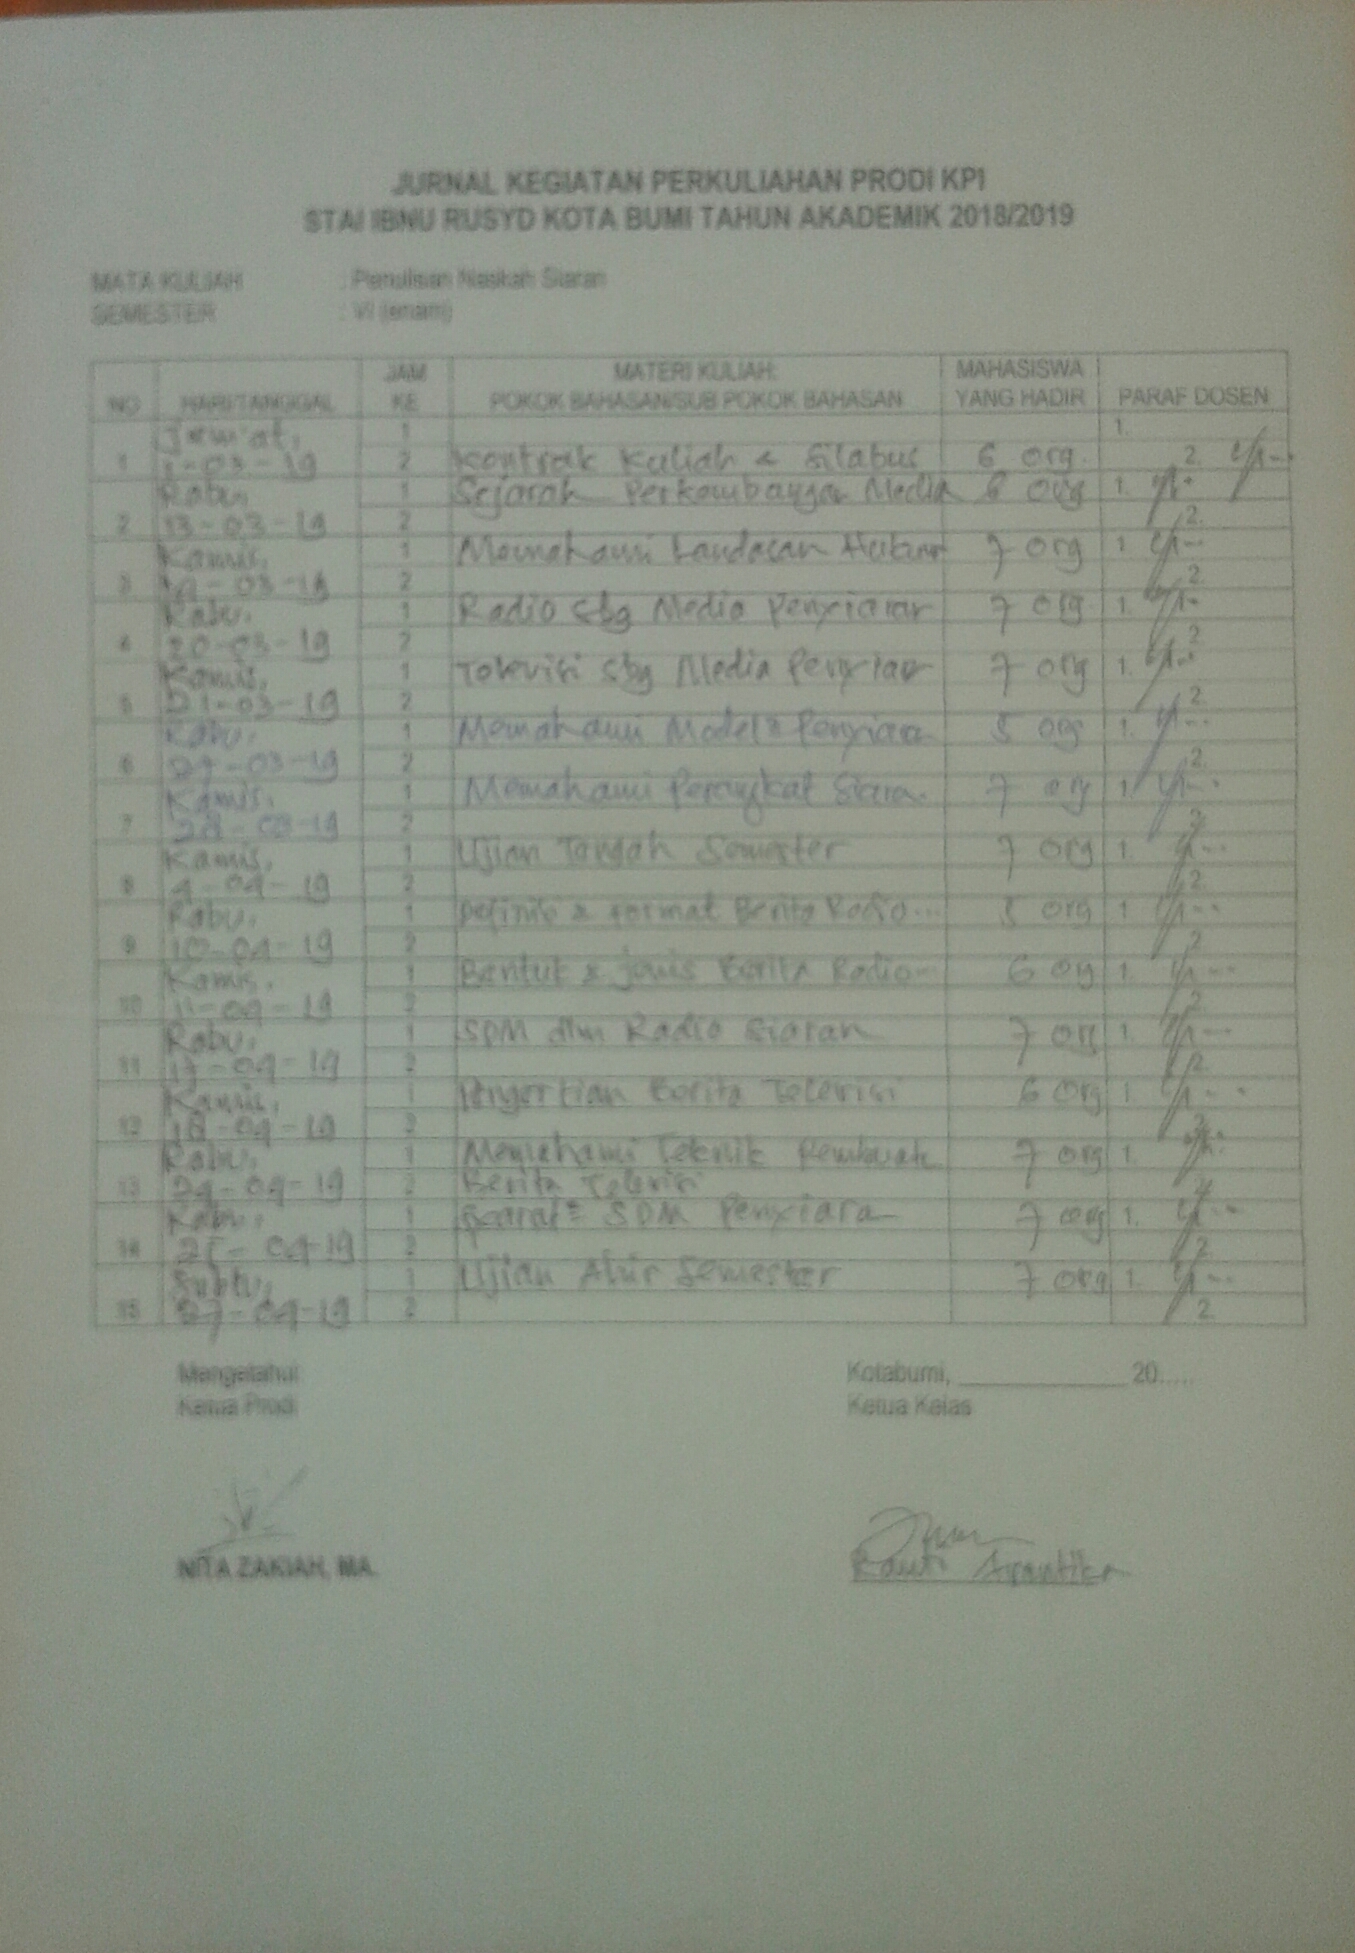 JURNAL KEGIATAN PERKULIAHAN PRODI KPI
STAI IBNU RUSYD KOTA BUMI TAHUN AKADEMIK 2018/2019
MATA KULIAH : Penulisan Naskah Siaran
SEMESTER : VI (enam)
NO HARI/TANGGAL JAM KE MATERI KULIAH: POKOK BAHASAN/SUB POKOK BAHASAN MAHASISWA YANG HADIR PARAF DOSEN
Jum'at, 1 1.
1 -03-19 2 Kontrak Kuliah & Silabus 6 org 2.
Rabu, 1 Sejarah Perkembangan Media 6 org 1.
2 13-03-19 2 2.
Kamis, 1 Memahami Landasan Hukum 7 org 1.
3 14-03-19 2 2.
Rabu, 1 Radio sbg Media Penyiaran 7 org 1.
4 20-03-19 2 2.
Kamis, 1 Televisi sbg Media Penyiar 7 org 1.
5 21-03-19 2 2.
Rabu, 1 Memahami Model2 Penyiara 5 org 1.
6 27-03-19 2 2.
Kamis, 1 Memahami Perangkat Siara. 7 org 1.
7 28-03-19 2 2.
Kamis, 1 Ujian Tengah Semester 7 org 1.
8 4-04-19 2 2.
Rabu, 1 Definisi & Format Berita Radio... 5 org 1.
9 10-04-19 2 2
Kamis, 1 Bentuk & jenis Berita Radio 6 org 1.
10 11-04-19 2 2.
Rabu, 1 SDM dlm Radio Siaran 7 org 1.
11 17-04-19 2 2.
Kamis, 1 Pengertian Berita Televisi 6 org 1.
12 18-04-19 2 2.
Rabu, 1 Memahami Teknik Pembuata 7 org 1.
13 24-04-19 2 Berita Televisi 2
Rabu, 1 Syarat2 SDM Penyiara 7 org 1.
14 25-04-19 2 2
Sabtu, 1 Ujian Ahir Semester 7 org 1.
15 27-04-19 2 2
Mengetahui Kotabumi, ______________ 20.....
Ketua Prodi Ketua Kelas
NITA ZAKIAH, MA.